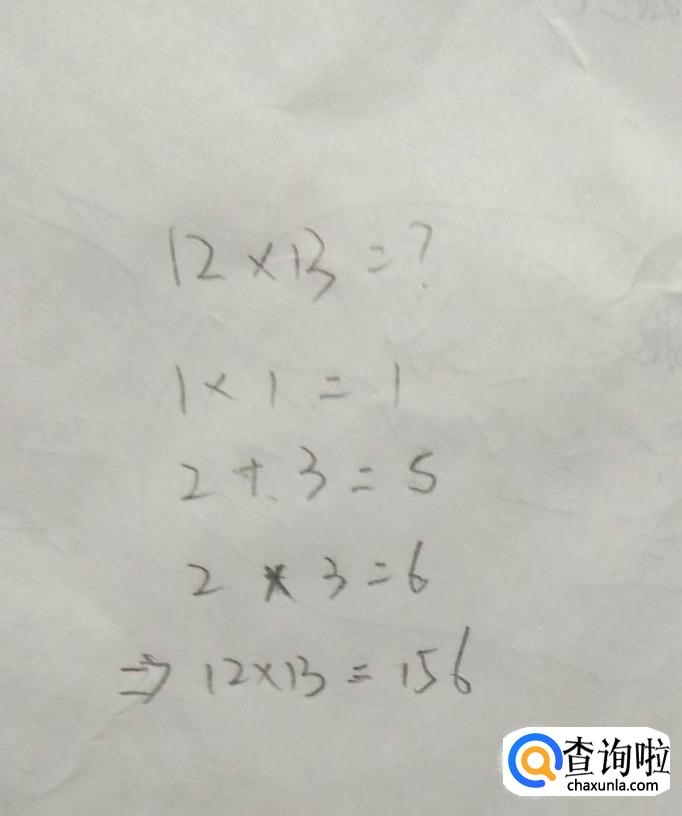 12×13=?
1×1=1
2+3=5
2×3=6
⇒12×13=156
查询啦
chaxunla.com